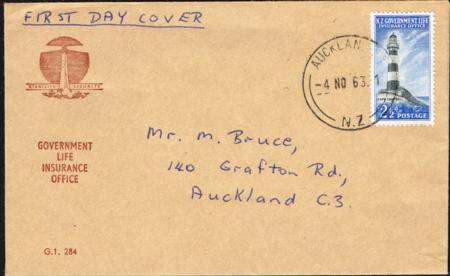 FIRST DAY COVER
N.Z GOVERNMENT LIFE
INSURANCE OFFICE
AUCKLAN
-4 NO 63.1
N.Z.
2½D POSTAGE
GOVERNMENT
LIFE
INSURANCE
OFFICE
Mr. M. Bruce,
140 Grafton Rd,
Auckland C.3.
G.1. 284